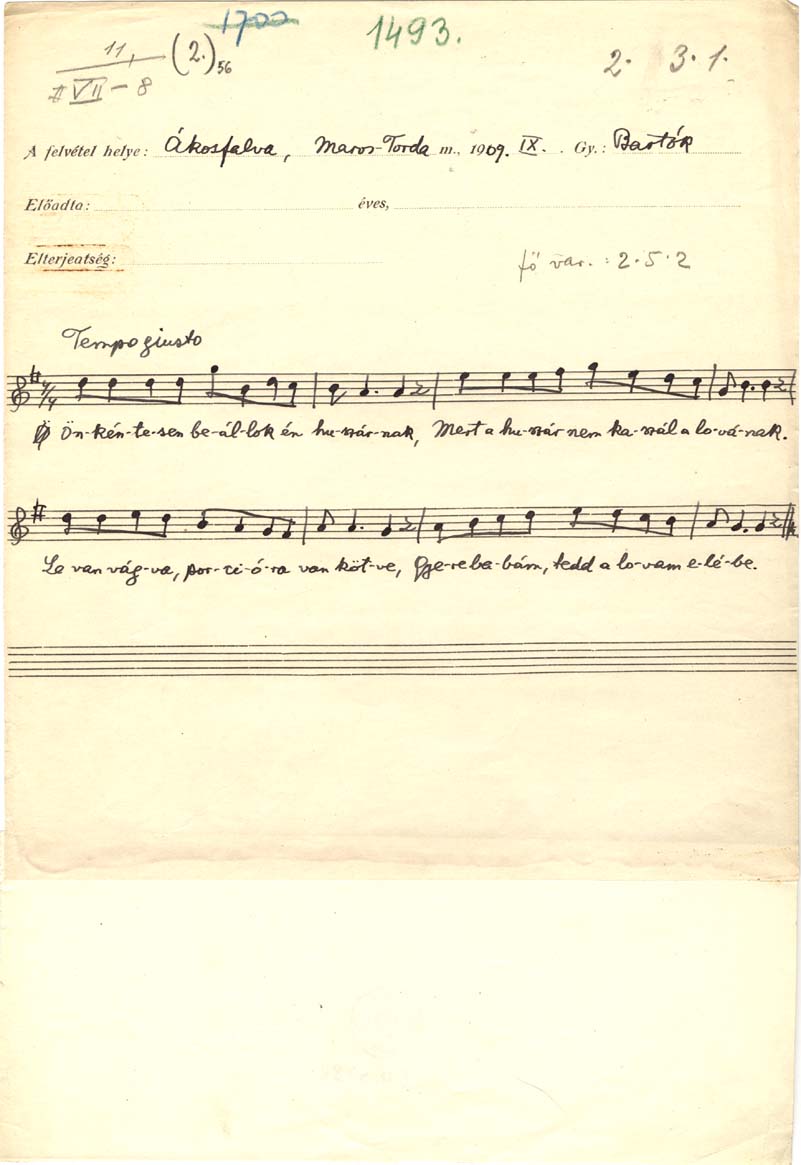 1700 1493.
11, (2.) 56 2. 3. 1.
VII - 8
A felvétel helye: Ákosfalva, Maros-Torda m., 1909. IX. Gy.: Bartók
Előadta: éves,
Elterjeatség:
fő var. : 2.5.2
Tempo giusto
4/4
Ön-kén-te-sen be-ál-lok én hu-szár-nak, Mert a hu-szár nem ka-szál a lo-vá-nak.
Le van vág-va, por-ci-ó-ra van köt-ve, Gye-re ba-bám, tedd a lo-vam e-lé-be.